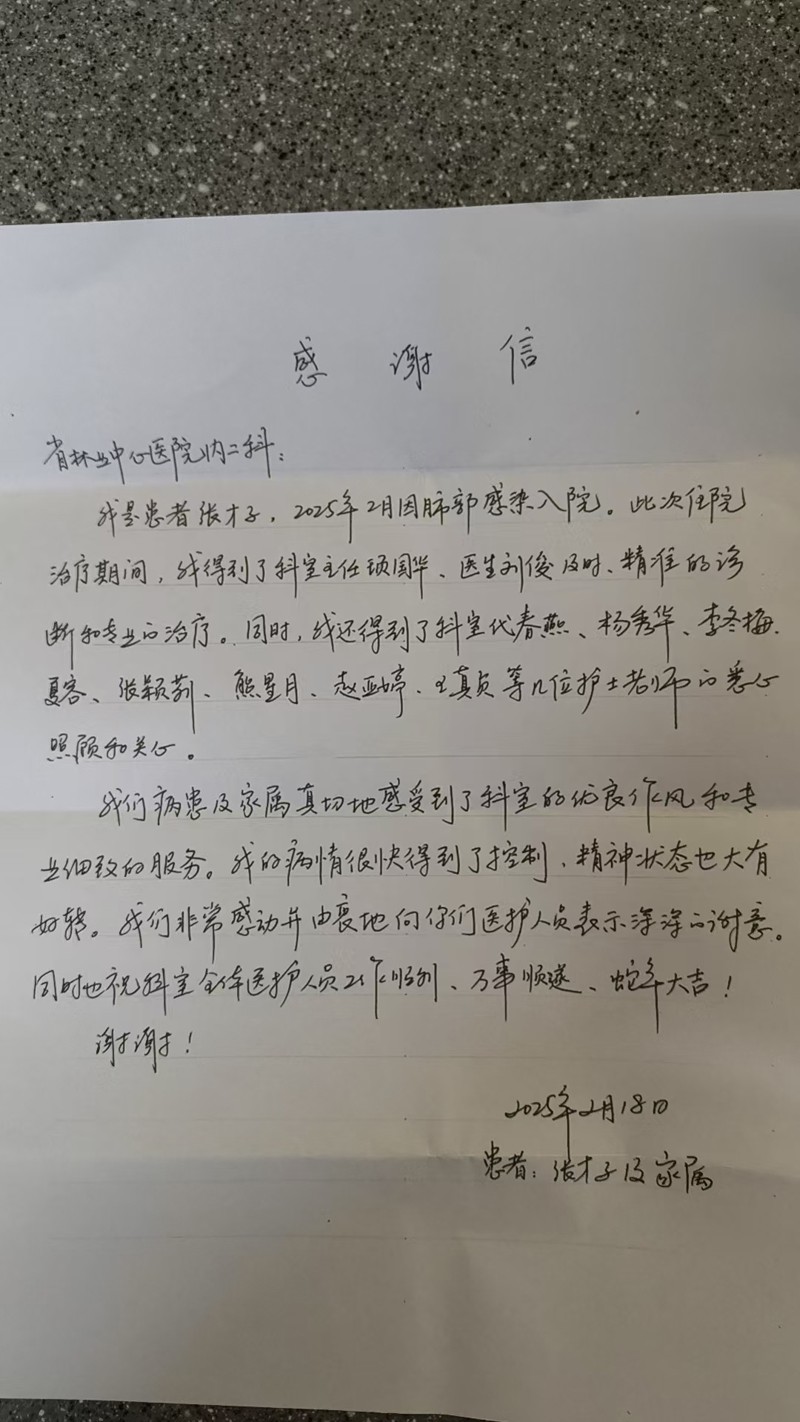 感谢信
省林业中心医院内二科：
我是患者张才子，2025年2月因肺部感染入院。此次住院
治疗期间，我得到了科室主任顼国华、医生刘俊及时、精准的诊
断和专业的治疗。同时，我还得到了科室代春燕、杨秀华、李冬梅、
夏容、张颖莉、熊星月、赵亚婷、王真贞等几位护士老师的悉心
照顾和关心。
我们病患及家属真切地感受到了科室的优良作风和专
业细致的服务。我的病情很快得到了控制，精神状态也大有
好转。我们非常感动并由衷地向你们医护人员表示深深的谢意。
同时也祝科室全体医护人员工作顺利、万事顺遂、蛇年大吉！
谢谢！
2025年2月18日
患者：张才子及家属